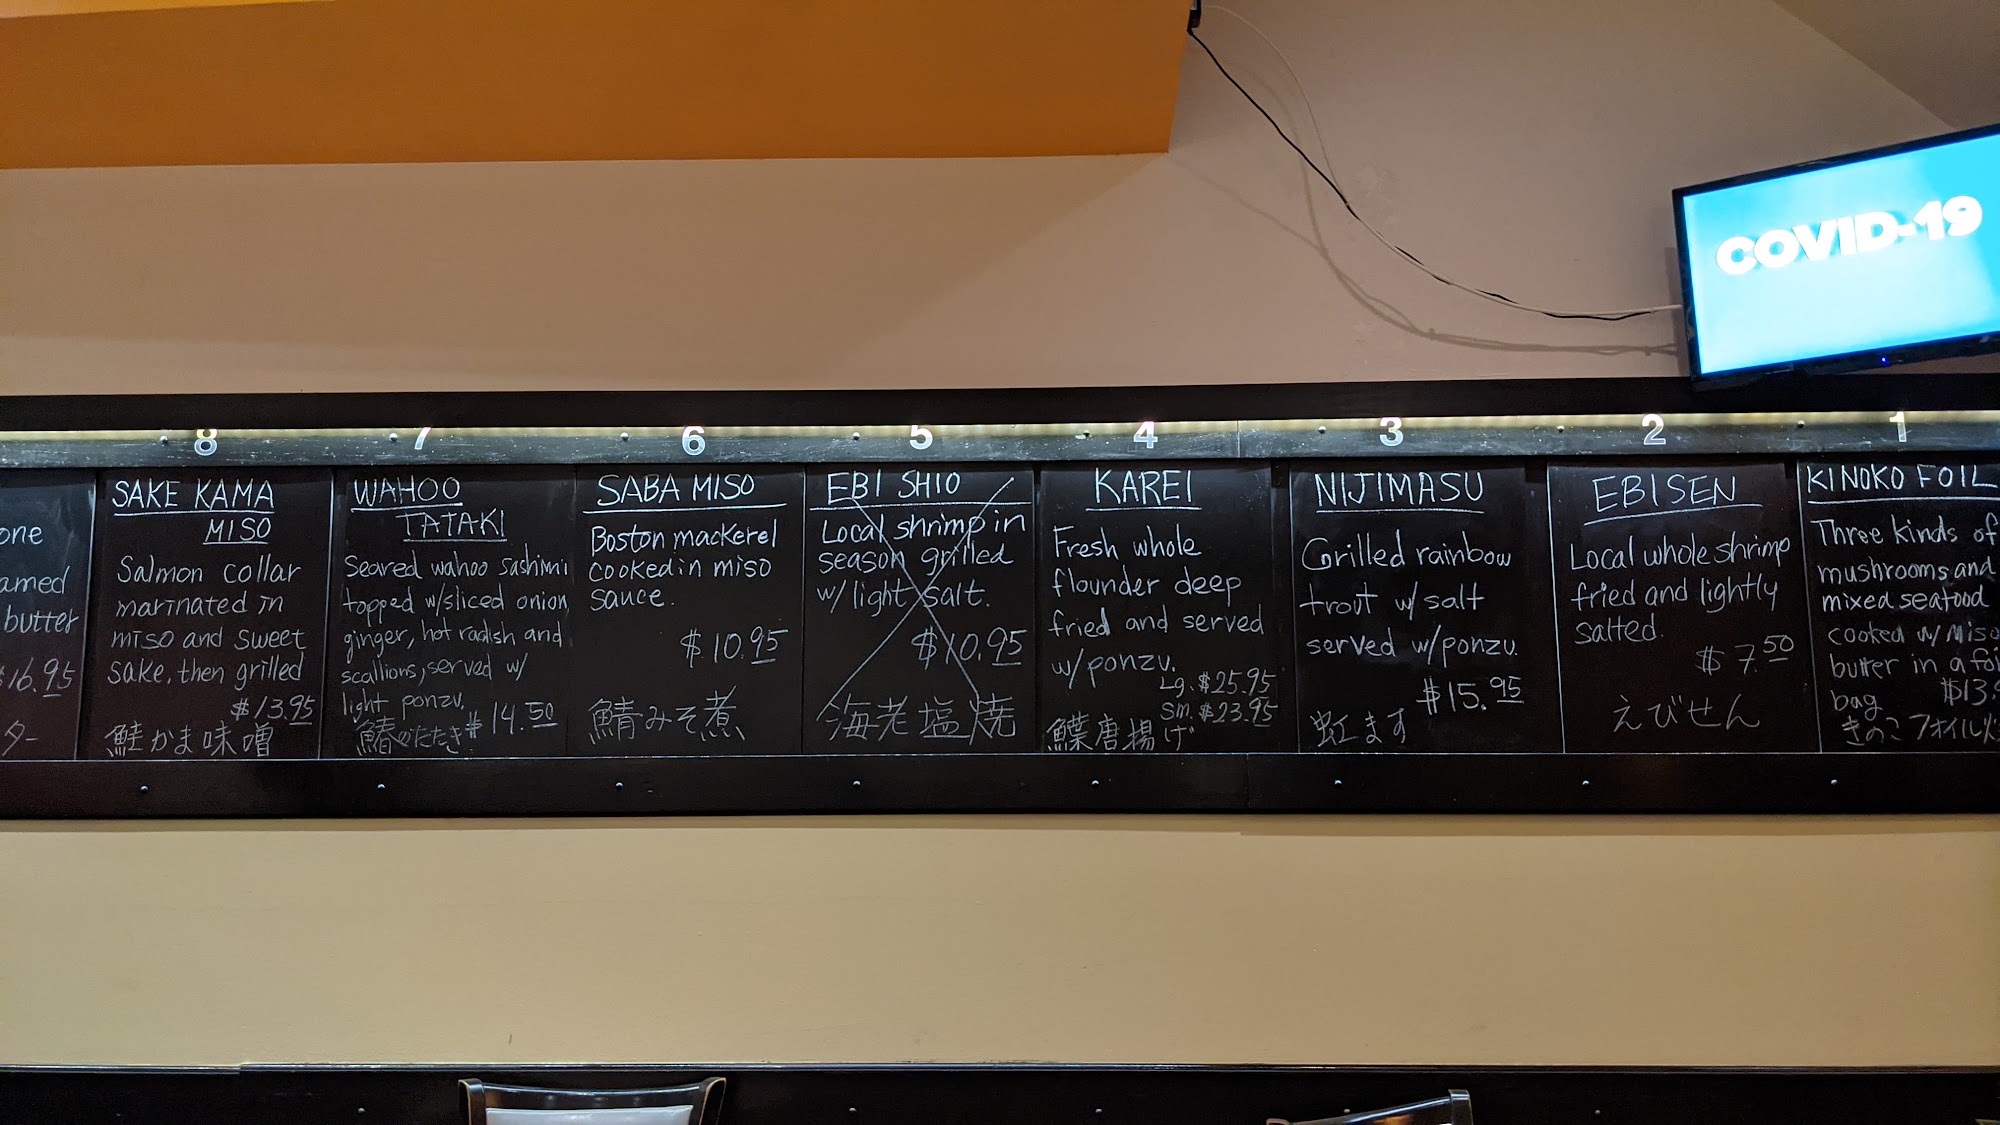 COVID-19
one
amed
butter
$16.95
ター
8
SAKE KAMA
MISO
Salmon collar
marinated in
miso and sweet
sake, then grilled
$13.95
鮭かま味噌
7
WAHOO
TATAKI
Seared wahoo sashimi
topped w/sliced onion,
ginger, hot radish and
scallions, served w/
light ponzu.
$14.50
鰆のたたき
6
SABA MISO
Boston mackerel
cooked in miso
sauce.
$10.95
鯖みそ煮
5
EBI SHIO
Local shrimp in
season grilled
w/ light salt.
$10.95
海老塩焼
4
KAREI
Fresh whole
flounder deep
fried and served
w/ponzu.
Lg. $25.95
Sm. $23.95
鰈唐揚げ
3
NIJIMASU
Grilled rainbow
trout w/ salt
served w/ponzu.
$15.95
虹ます
2
EBISEN
Local whole shrimp
fried and lightly
salted.
$7.50
えびせん
1
KINOKO FOIL
Three kinds of
mushrooms and
mixed seafood
cooked w/ miso
butter in a foi
bag $13.
きのこフォイル